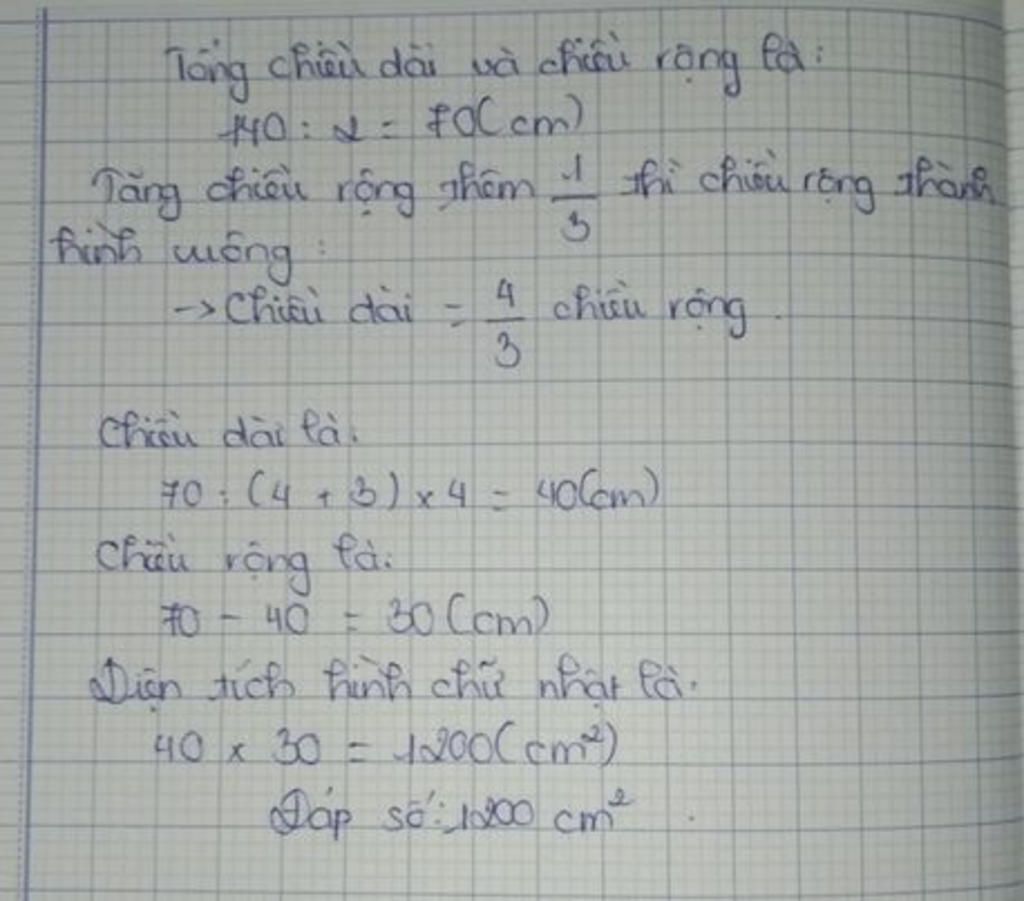 Tổng chiều dài và chiều rộng là:
140 : 2 = 70(cm)
Tăng chiều rộng thêm 1/3 thì chiều rộng thành
hình vuông:
→ Chiều dài = 4/3 chiều rộng.
Chiều dài là.
70 : (4 + 3) × 4 = 40(cm)
Chiều rộng là.
70 - 40 = 30(cm)
Diện tích hình chữ nhật là.
40 × 30 = 1200(cm²)
Đáp số: 1200 cm².